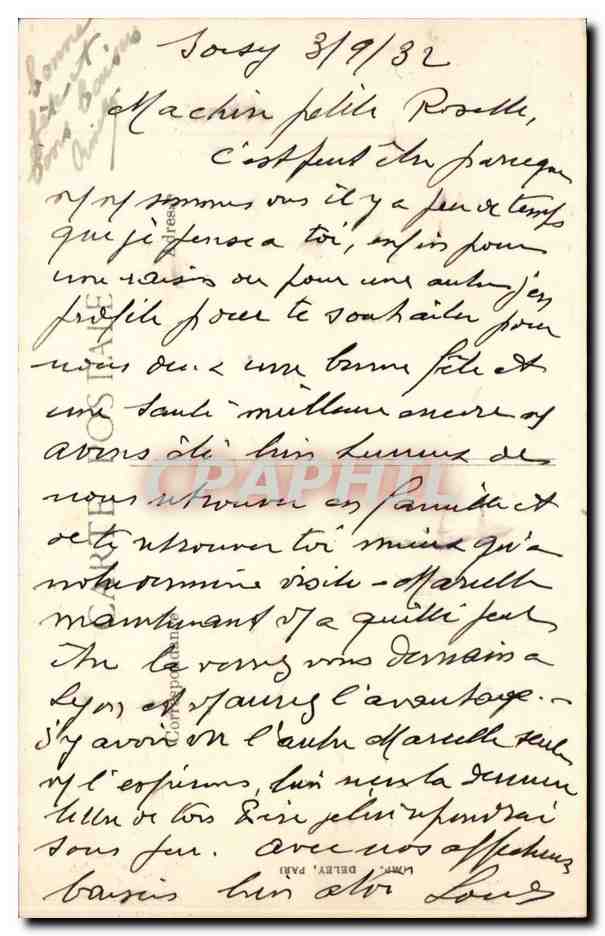 Bonne
fête et
bons baisers
Soisy 3/9/32
Ma chère petite Roselle,
C'est peut être parce que
ns ns sommes vus il y a peu de temps
que je pense a toi, enfin pour
une raison ou pour une autre j'en
profite pour te souhaiter pour
nous deux une bonne fête et
une santé meilleure encore ns
avons été bien heureux de
nous retrouver en famille et
de te retrouver toi mieux qu'a
notre dernière visite - Marcelle
maintenant ns a quitté peut
être la verrez vous demain a
Lyon, et vs aurez l'avantage
d'y avoir l'autre Marcelle
ns l'espérons, bien reçu la dernière
lettre de je lui répondrai
sous peu. Avec nos affectueux
baisers bien a toi Louis
CARTE POSTALE
Correspondance
Adresse
CPAPHIL
IMP. DELEY, PARI